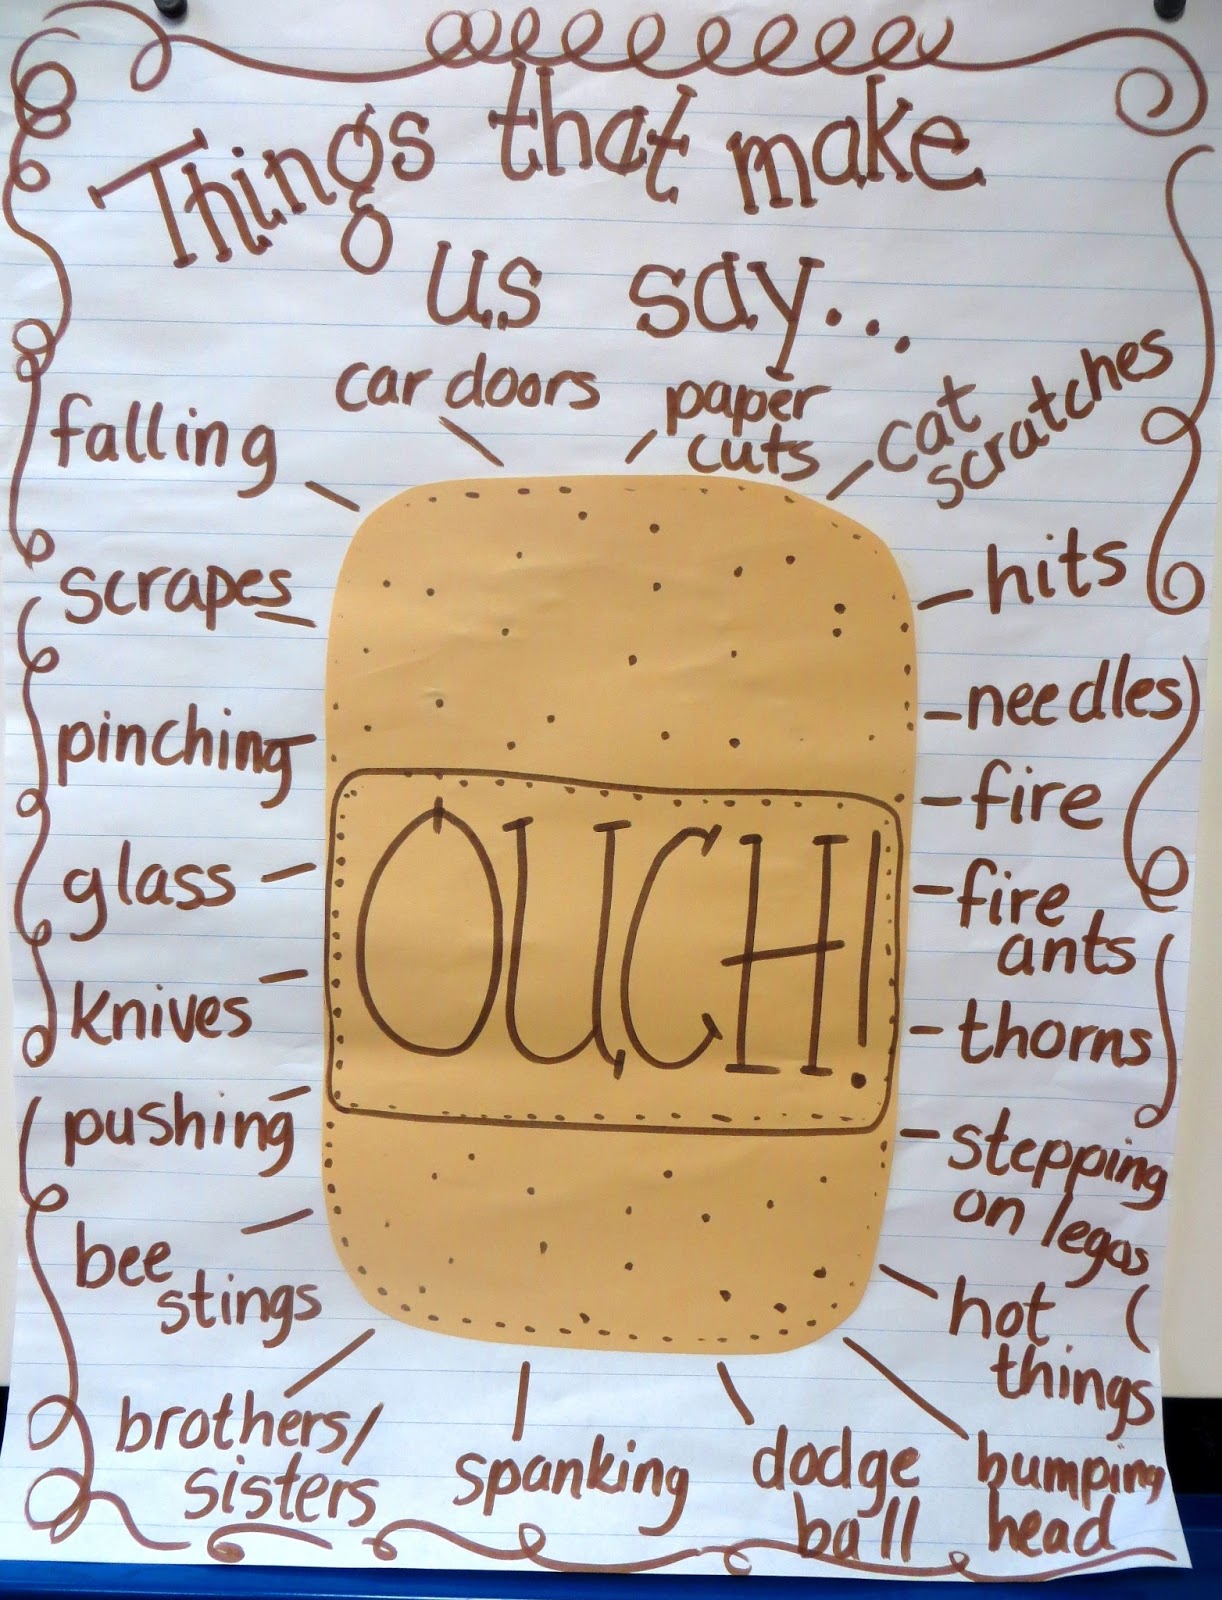 Things that make
us say...
car doors
paper
cuts
cat
scratches
falling
hits
scrapes
needles
pinching
fire
glass
fire
ants
knives
thorns
pushing
stepping
on legos
bee
stings
hot
things
brothers/
sisters
spanking
dodge
ball
bumping
head
OUCH!